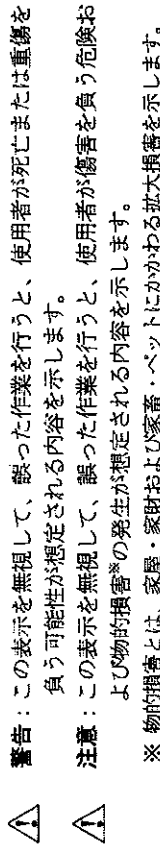 警告：この表示を無視して、誤った作業を行うと、使用者が死亡または重傷を
負う可能性が想定される内容を示します。
注意：この表示を無視して、誤った作業を行うと、使用者が傷害を負う危険お
よび物的損害※の発生が想定される内容を示します。
※ 物的損害とは、家屋・家財および家畜・ペットにかかわる拡大損害を示します。